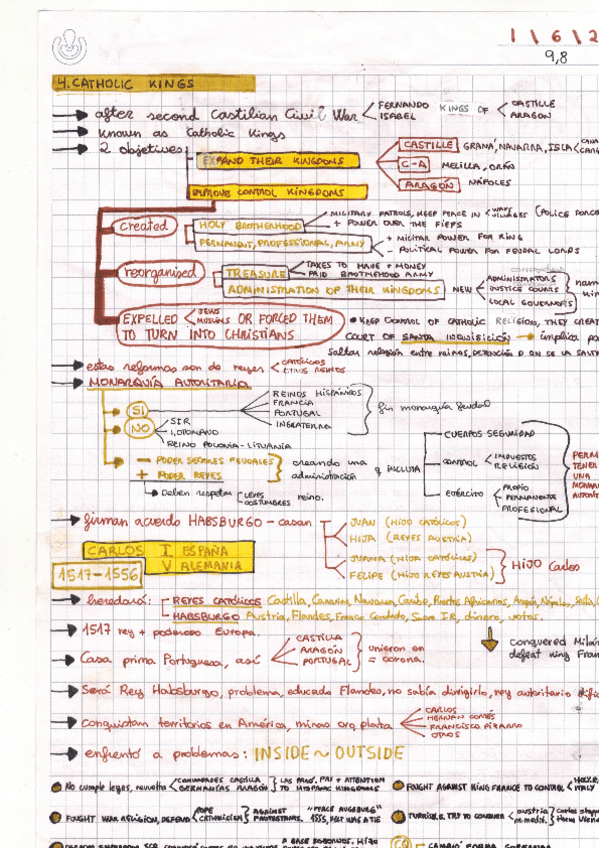 1 | 6 | 2
9,8
4. CATHOLIC KINGS
→ after second Castilian Civil War < FERNANDO ISABEL KINGS OF < CASTILLE ARAGON
→ Known as Catholic Kings
→ 2 objetives
EXPAND THEIR KINGDOMS
CASTILLE GRANÁ, NAVARRA, ISLA CANA
C-A MELILLA, ORÁN
ARAGÓN NÁPOLES
IMPROVE CONTROL KINGDOMS
created
HOLY BROTHERHOOD
MILITARY PATROLS, KEEP PEACE IN < WAYS VILLAGES (POLICE FORCE
+ POWER OVER THE FIEFS
PERMANENT, PROFESSIONAL, ARMY
+ MILITAR POWER FOR KING
- POLITICAL POWER FOR FEUDAL LORDS
reorganised
TREASURE
TAKES TO HAVE + MONEY
PAID BROTHERHOOD ARMY
ADMINISTRATION OF THEIR KINGDOMS NEW
ADMINISTRATORS
JUSTICE COURTS
LOCAL GOVERNORS
nam
kin
EXPELLED < JEWS MUSLIMS OR FORCED THEM
TO TURN INTO CHRISTIANS
• KEEP CONTROL OF CATHOLIC RELIGION, THEY CREAT
COURT OF SANTA INQUISICIÓN → implica po
saltar religión entre reinos, DETENCIÓN D QN SE LA SANTA
→ estas reformas son de reyes < CATÓLICOS OTROS REINOS
→ MONARQUÍA AUTORITARIA
SI
REINOS HISPÁNICOS
FRANCIA
PORTUGAL
INGLATERRA
fin monarquía feudal
NO
SIR
I. OTOMANO
REINO POLONIA-LITUANIA
- PODER SEÑORES FEUDALES
+ PODER REYES
creando una administración
q INCLUÍA
CUERPOS SEGURIDAD
CONTROL < IMPUESTOS RELIGIÓN
EJÉRCITO < PROPIO PERMANENTE PROFESIONAL
PERM
TENER
UNA
MONAR
AUTORIT
→ Deben respetar < LEYES COSTUMBRES reino.
→ firman acuerdo HABSBURGO - casan
JUAN (HIJO CATÓLICOS)
HIJA (REYES AUSTRIA)
JUANA (HIJA CATÓLICOS)
FELIPE (HIJO REYES AUSTRIA)
HIJO Carlos
CARLOS I ESPAÑA
V ALEMANIA
1517-1556
→ heredará:
REYES CATÓLICOS Castilla, Canarias, Navarra, Caribe, Puertos Africanos, Aragón, Nápoles,
HABSBURGO Austria, Flandes, Franco Condado, Sacro I.R, dinero, votos.
→ 1517 rey + poderoso Europa.
conquered Milán
defeat king Fran
→ Casa prima Portuguesa, así
CASTILLA
ARAGÓN
PORTUGAL
unieron en
= corona.
→ Será Rey Habsburgo, problema, educado Flandes, no sabía dirigirlo, rey autoritario difíc
→ Conquistan territorios en América, minas oro, plata
CARLOS
HERNÁN CORTÉS
FRANCISCO PIZARRO
OTROS
→ enfrentó a problemas: INSIDE ~ OUTSIDE
• No cumple leyes, revuelta < COMUNIDADES CASTILLA GERMANÍAS ARAGÓN } LAS PROV. PAY + ATTENTION TO HISPANIC KINGDOMS
• FOUGHT AGAINST KING FRANCE TO CONTROL < ITALY
• FOUGHT WAR RELIGION, DEFEND < POPE CATHOLICISM } AGAINST PROTESTANTS. "PEACE AUGSBURG" 1555,
• TURKISH E. TRY TO CONQUER < austria